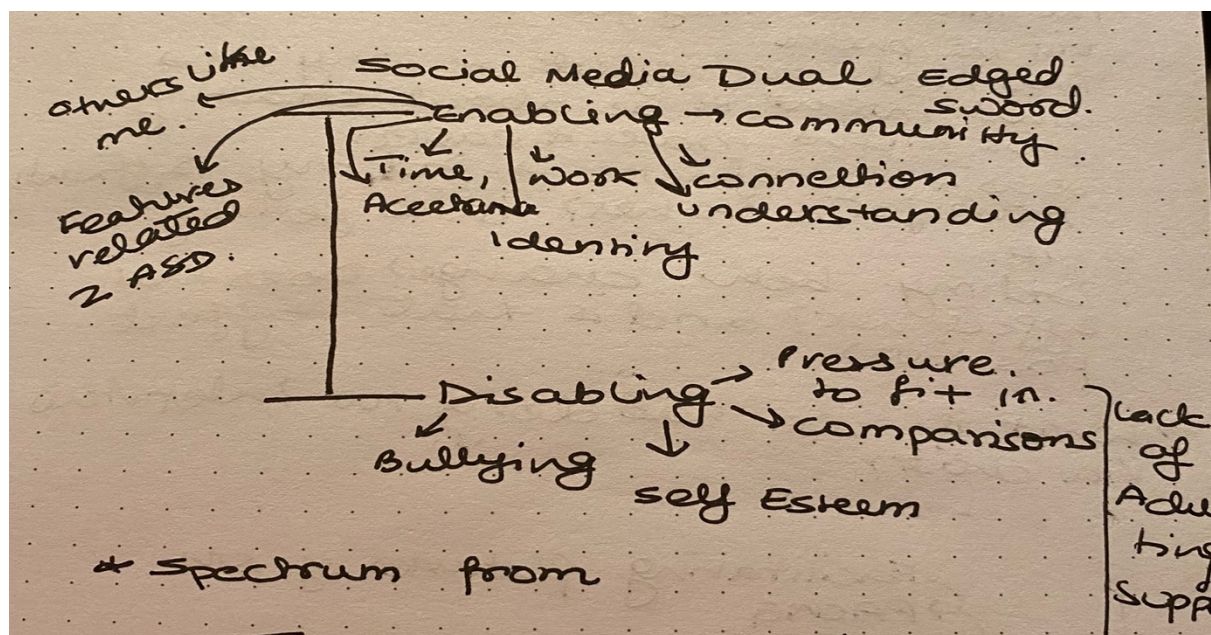 Social Media Dual Edged
Sword.
others like
me.
Enabling → community.
Time, work connection
Acceptance understanding
Identity
Features
related
2 ASD.
Disabling
Pressure
to fit in.
comparisons
Bullying
Self Esteem
Lack
of
Adu
ting
Supp
* Spectrum from